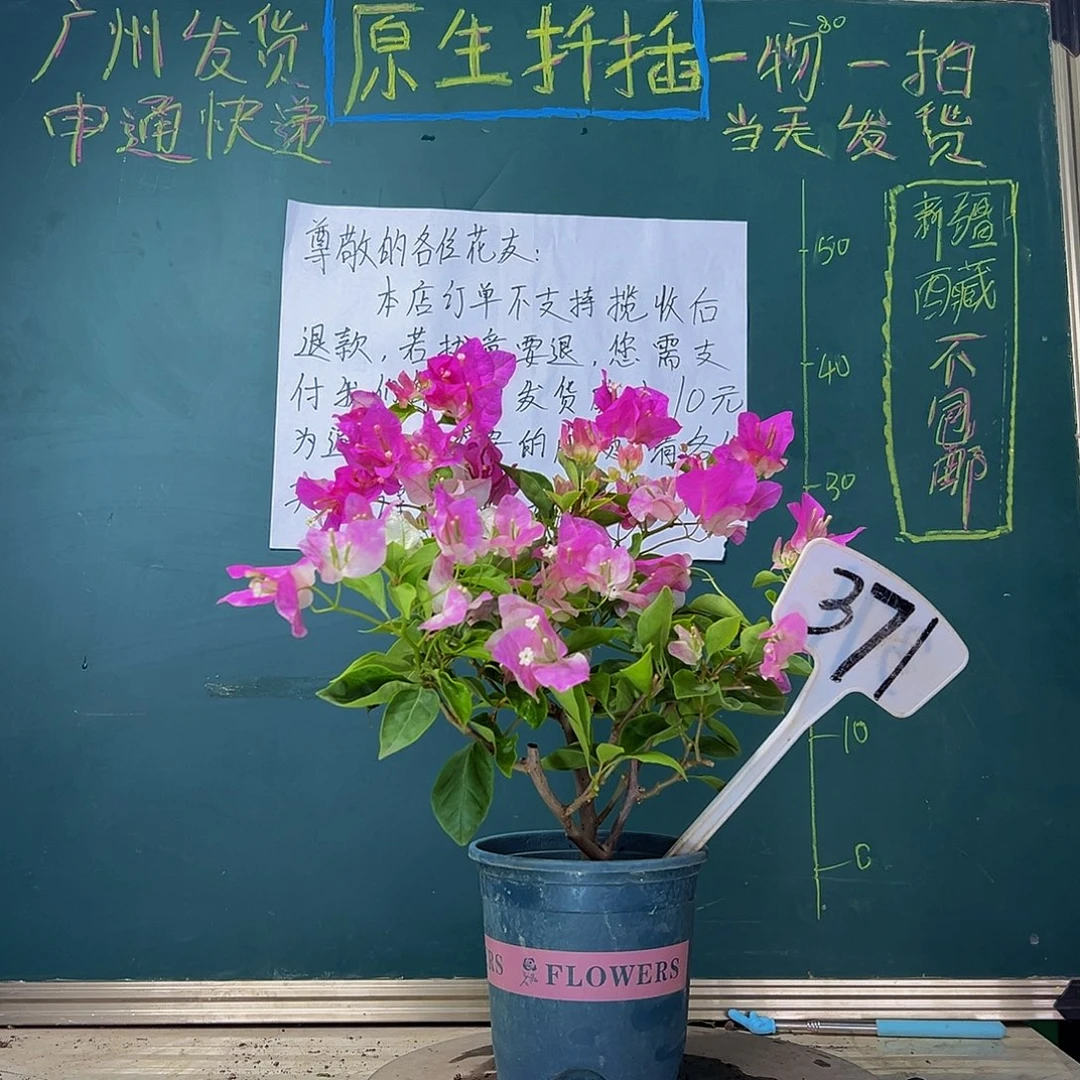 广州发货
申通快递
原生扦插
一物一拍
当天发货
80
尊敬的各位花友:
本店订单不支持揽收后
退款,若执意要退,您需支
付我们 发货 10元
为退 的
50
40
30
10
0
新疆
西藏
不包邮
371
RS FLOWERS